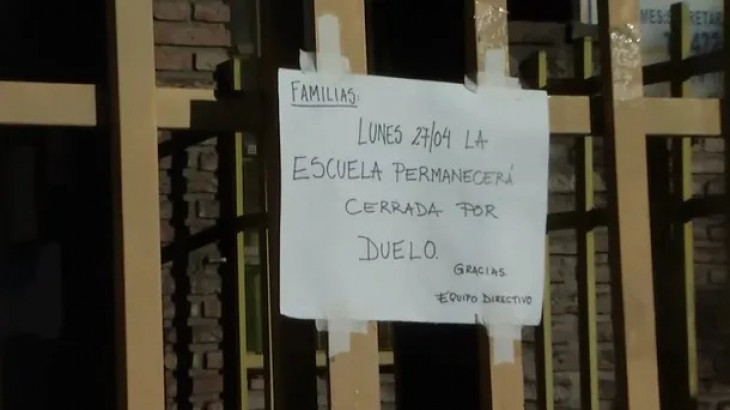 FAMILIAS:
LUNES 27/04 LA
ESCUELA PERMANECERÁ
CERRADA POR
DUELO.
GRACIAS.
EQUIPO DIRECTIVO